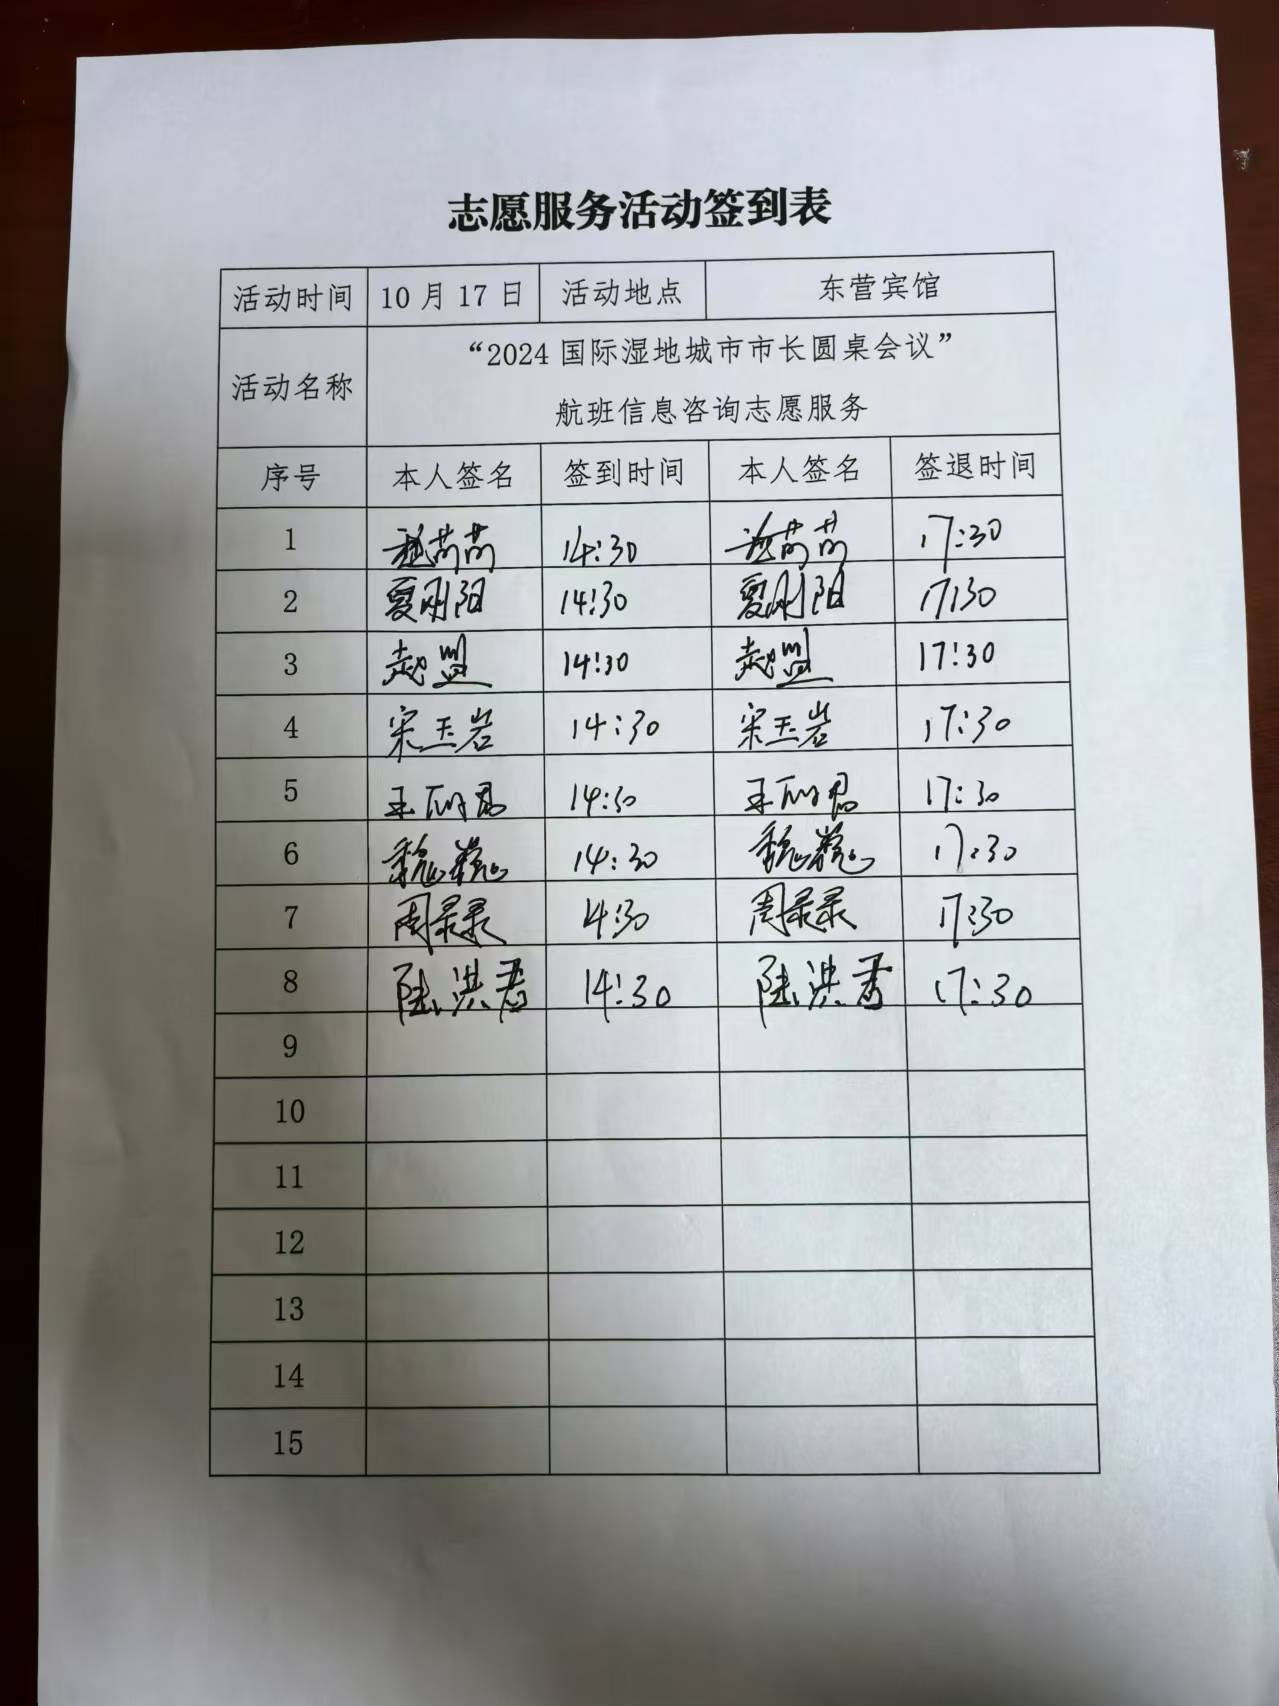 志愿服务活动签到表
活动时间 10月17日 活动地点 东营宾馆
活动名称 “2024国际湿地城市市长圆桌会议”
航班信息咨询志愿服务
序号 本人签名 签到时间 本人签名 签退时间
1 14:30 17:30
2 夏刚阳 14:30 夏刚阳 17:30
3 赵盟 14:30 赵盟 17:30
4 宋玉岩 14:30 宋玉岩 17:30
5 王丽君 14:30 王丽君 17:30
6 魏巍 14:30 魏巍 17:30
7 周录录 14:30 周录录 17:30
8 陆洪君 14:30 陆洪君 17:30
9
10
11
12
13
14
15